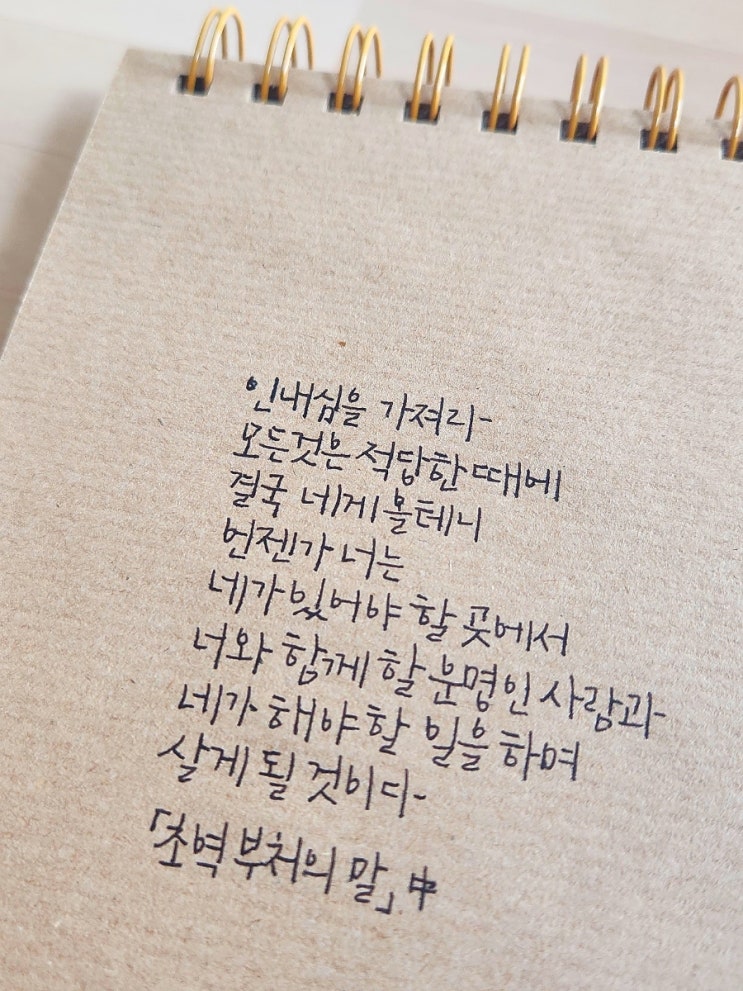 인내심을 가져라
모든것은 적당한 때에
결국 네게 올테니
언젠가 너는
네가 있어야 할 곳에서
너와 함께 할 운명인 사람과
네가 해야할 일을 하며
살게 될 것이다
「초역 부처의 말」中